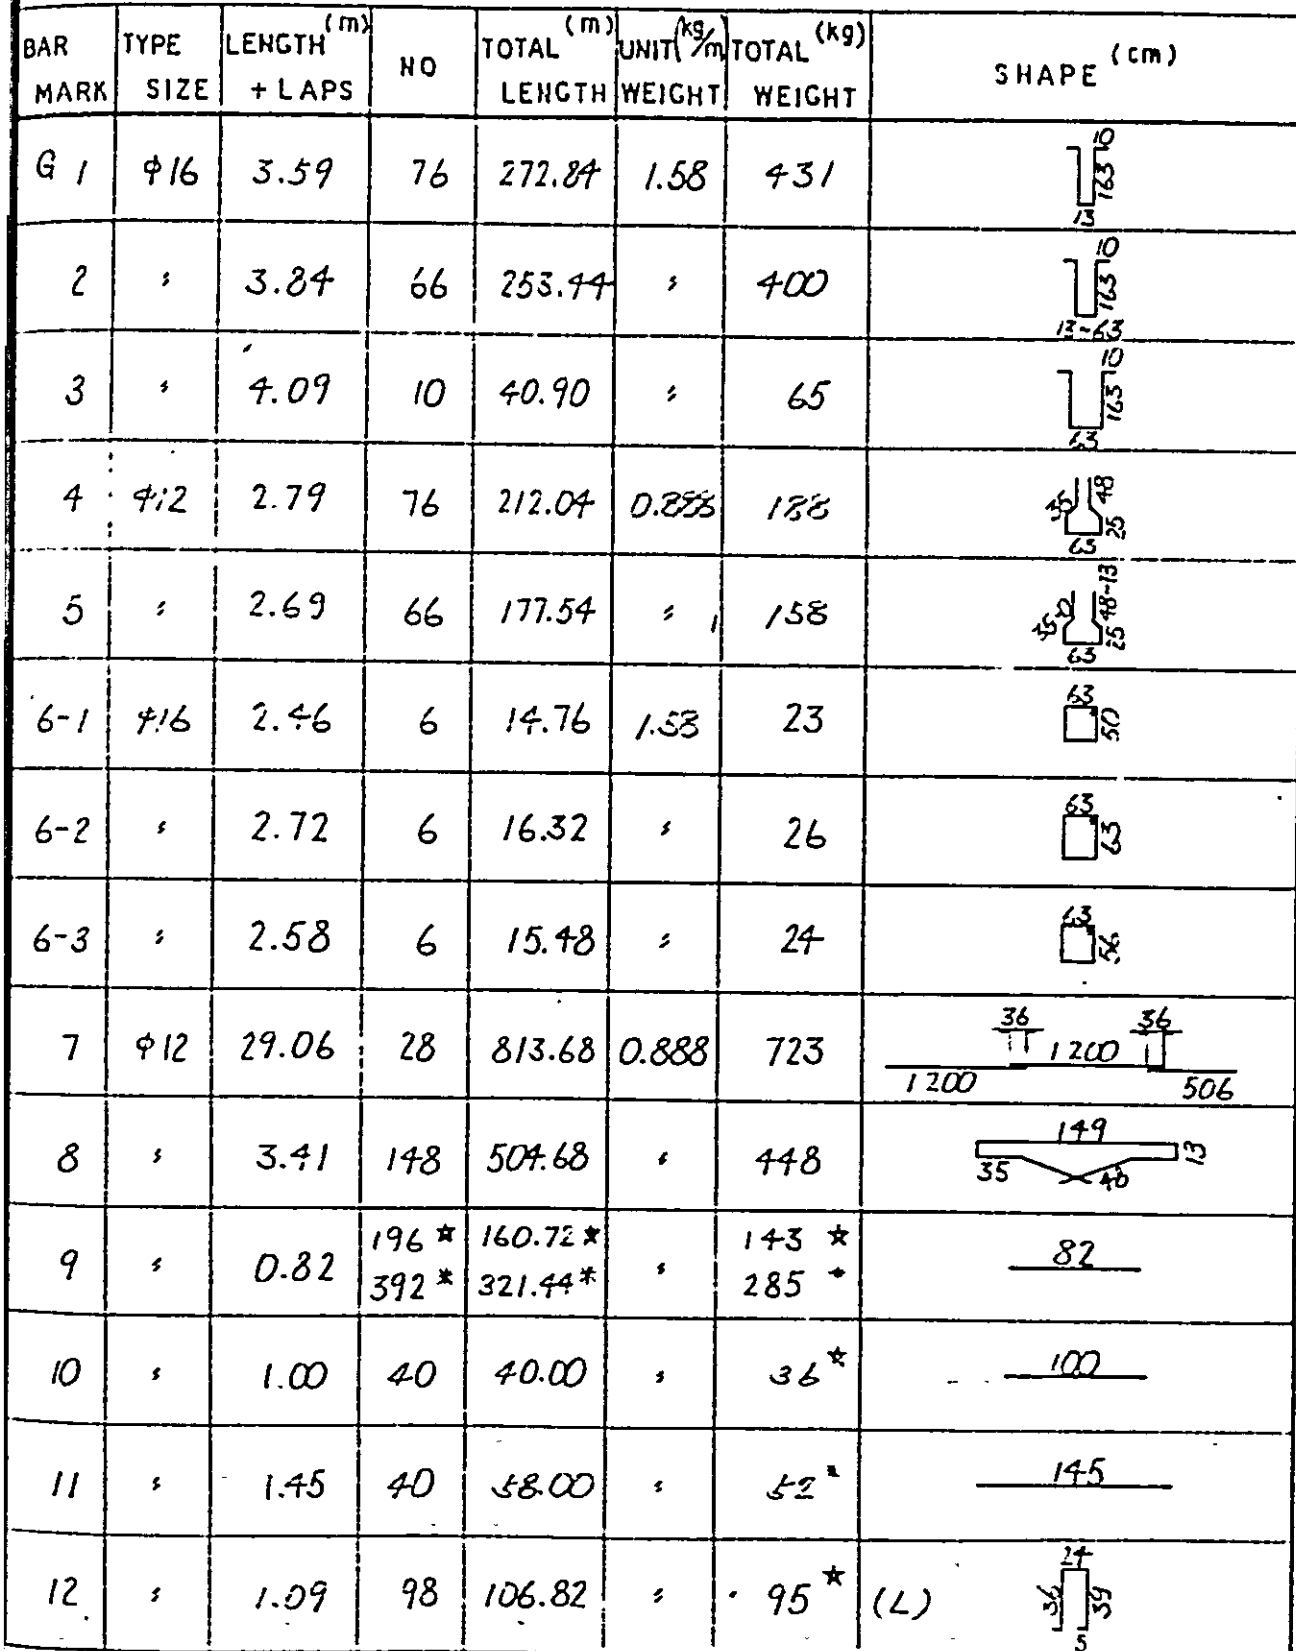 BAR MARK TYPE SIZE LENGTH (m) + LAPS NO TOTAL (m) LENGTH UNIT (kg/m) WEIGHT TOTAL (kg) WEIGHT SHAPE (cm)
G 1 φ16 3.59 76 272.84 1.58 431 10 163 13
2 〃 3.84 66 253.44 〃 400 10 163 13~63
3 〃 4.09 10 40.90 〃 65 10 163 63
4 φ12 2.79 76 212.04 0.888 188 35 48 25 63
5 〃 2.69 66 177.54 〃 158 35 48~13 25 63
6-1 φ16 2.46 6 14.76 1.58 23 63 50
6-2 〃 2.72 6 16.32 〃 26 63 63
6-3 〃 2.58 6 15.48 〃 24 63 56
7 φ12 29.06 28 813.68 0.888 723 36 36 1200 1200 506
8 〃 3.41 148 504.68 〃 448 149 13 35 40
9 〃 0.82 196 ☆ 160.72 ☆ 〃 143 ☆ 82
392 * 321.44 * 285 *
10 〃 1.00 40 40.00 〃 36 ☆ 100
11 〃 1.45 40 58.00 〃 52 * 145
12 〃 1.09 98 106.82 〃 95 ☆ (L) 24 36 39 5